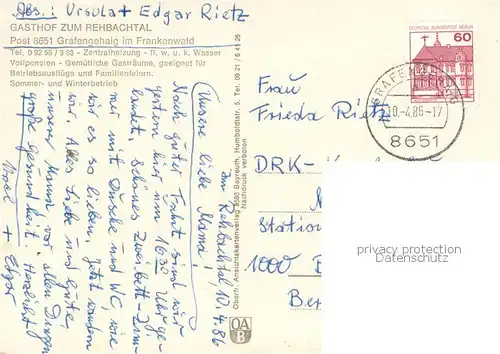 Abs.: Ursula + Edgar Rietz
GASTHOF ZUM REHBACHTAL
Post 8651 Grafengehaig im Frankenwald
Tel. 0 92 55 / 3 63 - Zentralheizung - fl. w. u. k. Wasser
Vollpension - Gemütliche Gasträume, geeignet für
Betriebsausflüge und Familienfeiern.
Sommer- und Winterbetrieb
Im Rehbachtal 10.4.86
Unsere liebe Mama!
Nach guter Fahrt sind wir
gestern hier um 16 30 Uhr ge-
landet. Schönes Zweibett-Zim-
mer mit Dusche und WC, wie
wir es so lieben. Jetzt wandern
wir. Alles Liebe und Gute
unserer Mama, vor allen Dingen
große Gesundheit. Herzlichst
+ Edgar
Oberfr. Ansichtskartenverlag 8580 Bayreuth, Humboldtstr. 5, Tel. 09 21 / 6 41 26
Nachdruck verboten
OA
B
DEUTSCHE BUNDESPOST BERLIN
60
GRAFENGEHAIG
10.-4.86-17
8651
Frau
Frieda Rietz
DRK-
Station
1000
Ber
privacy protection
Datenschutz